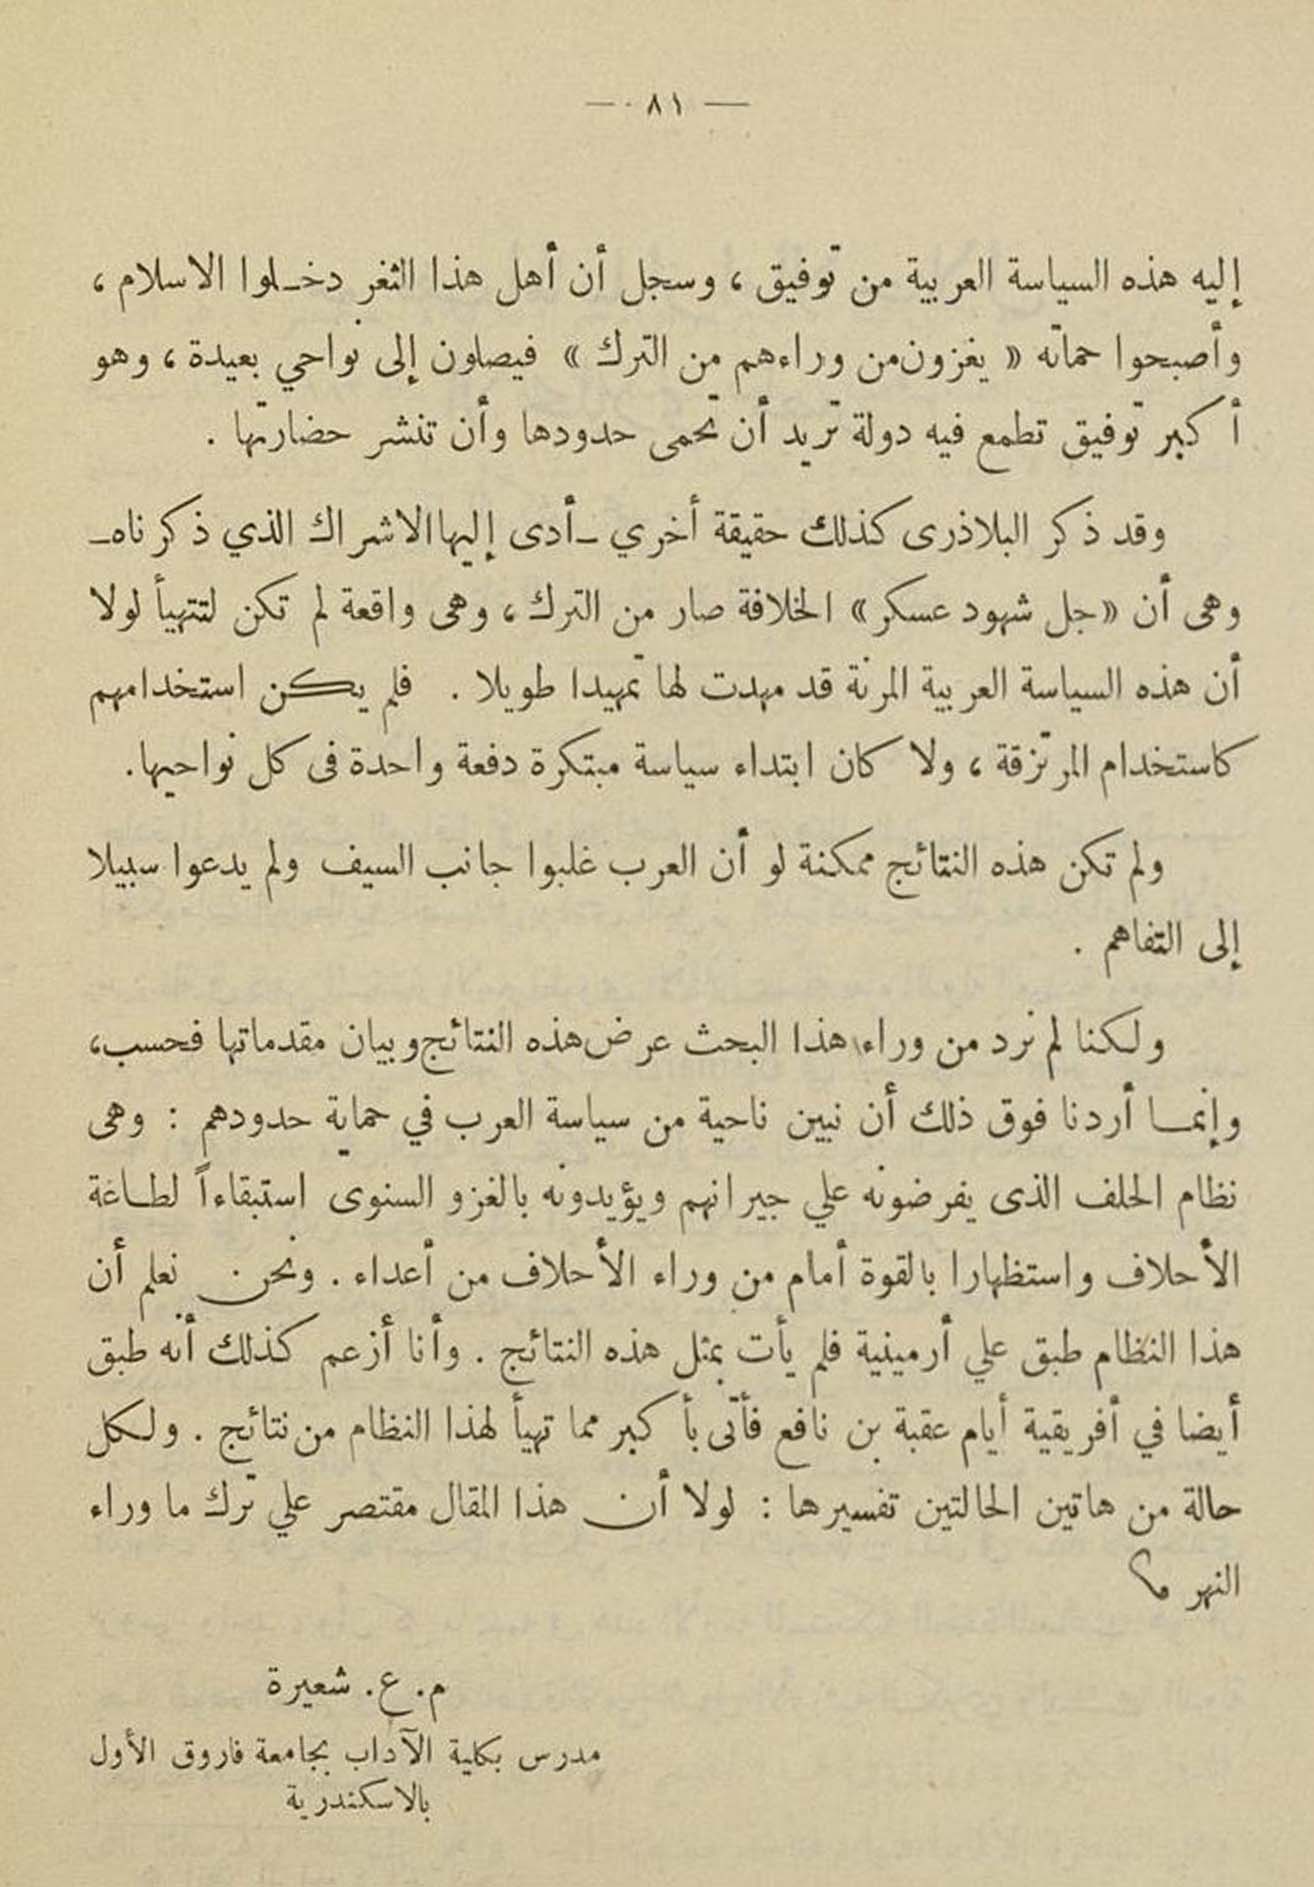 — ٨١ —
إليه هذه السياسة العربية من توفيق ، وسجل أن أهل هذا الثغر دخلوا الاسلام ،
وأصبحوا حماته « يغزون من وراءهم من الترك » فيصلون إلى نواحي بعيدة ، وهو
أكبر توفيق تطمع فيه دولة تريد أن تحمى حدودها وأن تنشر حضارتها .
وقد ذكر البلاذرى كذلك حقيقة أخري – أدى إليها الاشراك الذي ذكرناه –
وهى أن « جل شهود عسكر » الخلافة صار من الترك ، وهى واقعة لم تكن لتتهيأ لولا
أن هذه السياسة العربية المرنة قد مهدت لها تمهيدا طويلا . فلم يكن استخدامهم
كاستخدام المرتزقة ، ولا كان ابتداء سياسة مبتكرة دفعة واحدة فى كل نواحيها .
ولم تكن هذه النتائج ممكنة لو أن العرب غلبوا جانب السيف ولم يدعوا سبيلا
إلى التفاهم .
ولكنا لم نرد من وراء هذا البحث عرض هذه النتائج وبيان مقدماتها فحسب ،
وإنما أردنا فوق ذلك أن نبين ناحية من سياسة العرب في حماية حدودهم : وهى
نظام الحلف الذى يفرضونه علي جيرانهم ويؤيدونه بالغزو السنوى استبقاءاً لطاعة
الأحلاف واستظهارا بالقوة أمام من وراء الأحلاف من أعداء . ونحن نعلم أن
هذا النظام طبق علي أرمينية فلم يأت بمثل هذه النتائج . وأنا أزعم كذلك أنه طبق
أيضا في أفريقية أيام عقبة بن نافع فأتى بأكبر مما تهيأ لهذا النظام من نتائج . ولكل
حالة من هاتين الحالتين تفسيرها : لولا أن هذا المقال مقتصر علي ترك ما وراء
النهر
م. ع. شعيرة
مدرس بكلية الآداب بجامعة فاروق الأول
بالاسكندرية